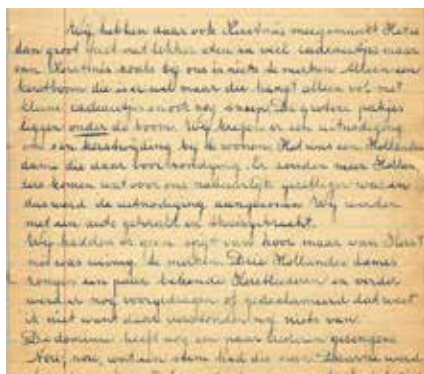 Wij hebben daar ook Kerstmis meegemaakt. Het is
dan groot feest met lekker eten en veel cadeautjes maar
van Kerstmis zoals bij ons is niets te merken. Alleen een
kerstboom die is er wel maar die hangt alleen vol met
kleine cadeautjes en ook nog snoep. De grotere pakjes
liggen onder de boom. Wij kregen er een uitnodiging
om een kerstwijding bij te wonen. Het was een Hollandse
dame die daar voor uitnodigde. Er zouden meer Hollan
ders komen wat voor ons natuurlijk gezelliger was en
dus werd de uitnodiging aangenomen. Wij werden
met een auto gehaald en thuisgebracht.
Wij hadden er geen spijt van hoor maar van Kerst
mis was weinig te merken. Drie Hollandse dames
zongen een paar bekende Kerstliederen en verder
werd er nog voorgedragen of gedeclameerd dat weet
ik niet want daar verstonden wij niets van.
De dominee heeft nog een paar liederen gezongen
Nou, nou, wat een stem had die man. Daarna werd